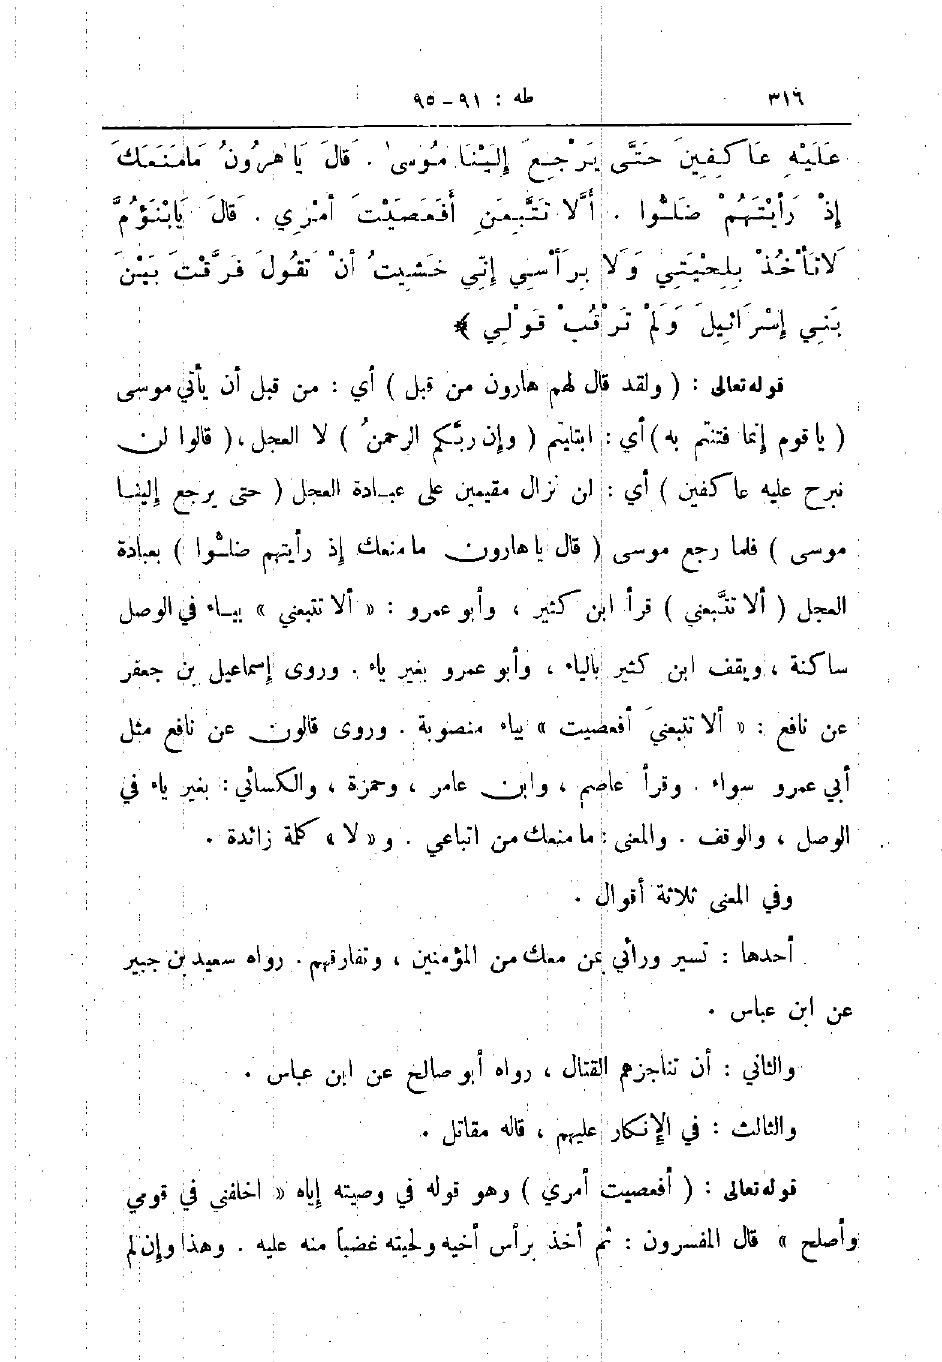 ٣١٦
طه : ٩١ - ٩٥
عَلَيْهِ عَاكِفِينَ حَتَّى يَرْجِعَ إِلَيْنَا مُوسىٰ . قَالَ يَا هٰرُونُ مَا مَنَعَكَ
إِذْ رَأَيْتَهُمْ ضَلُّوا . أَلَّا تَتَّبِعَنِ أَفَعَصَيْتَ أَمْرِي . قَالَ يَابْنَؤُمَّ
لَا تَأْخُذْ بِلِحْيَتِي وَلَا بِرَأْسِي إِنِّي خَشِيتُ أَنْ تَقُولَ فَرَّقْتَ بَيْنَ
بَنِي إِسْرَائِيلَ وَلَمْ تَرْقُبْ قَوْلِي ﴾
قوله تعالى : ( ولقد قال لهم هارون من قبل ) أي : من قبل أن يأتي موسى
( يا قوم إنما فتنتم به ) أي : ابتليتم ( وإن ربَّكم الرحمنُ ) لا العجل ، ( قالوا لن
نبرح عليه عاكفين ) أي : لن نزال مقيمين على عبادة العجل ( حتى يرجع إلينا
موسى ) فلما رجع موسى ( قال يا هارون ما منعك إذ رأيتهم ضلُّوا ) بعبادة
العجل ( ألا تتَّبعني ) قرأ ابن كثير ، وأبو عمرو : « ألا تتبعني » بياء في الوصل
ساكنة ، ويقف ابن كثير بالياء ، وأبو عمرو بغير ياء . وروى إسماعيل بن جعفر
عن نافع : « ألا تتبعنيَ أفعصيت » بياء منصوبة . وروى قالون عن نافع مثل
أبي عمرو سواء . وقرأ عاصم ، وابن عامر ، وحمزة ، والكسائي : بغير ياء في
الوصل ، والوقف . والمعنى : ما منعك من اتباعي . و « لا » كلمة زائدة .
وفي المعنى ثلاثة أقوال .
أحدها : تسير ورائي بمن معك من المؤمنين ، وتفارقهم . رواه سعيد بن جبير
عن ابن عباس .
والثاني : أن تناجزهم القتال ، رواه أبو صالح عن ابن عباس .
والثالث : في الإنكار عليهم ، قاله مقاتل .
قوله تعالى : ( أفعصيت أمري ) وهو قوله في وصيته إياه « اخلفني في قومي
وأصلح » قال المفسرون : ثم أخذ برأس أخيه ولحيته غضباً منه عليه . وهذا وإن لم